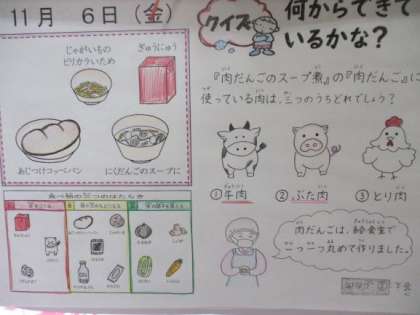 11月 6日(金)
じゃがいもの
ピリカラいため
ぎゅうにゅう
あじつけコッペパン
にくだんごのスープに
クイズ
何からできて
いるかな?
『肉だんごのスープ煮』の『肉だんご』に
使っている肉は、三つのうちどれでしょう?
①牛肉
②ぶた肉
③とり肉
肉だんごは、給食室で
一つ一つ丸めて作りました。